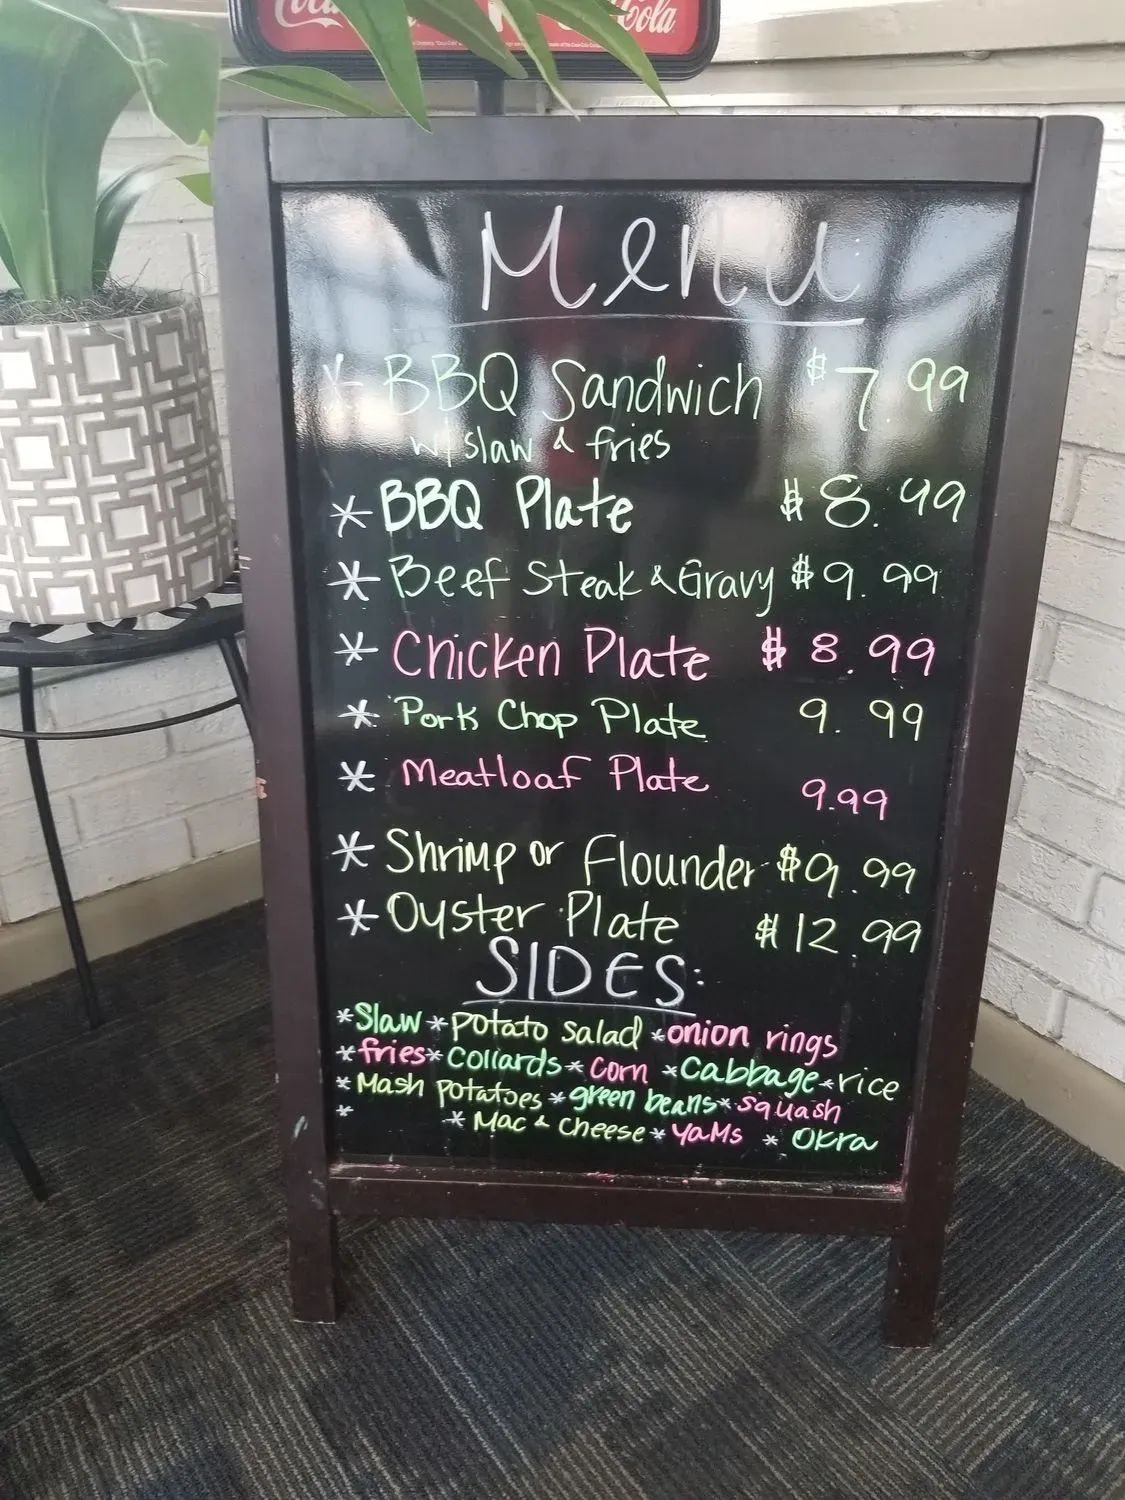 Coca-Cola
Menu
* BBQ Sandwich $7.99
w/ slaw & fries
* BBQ Plate $8.99
* Beef Steak & Gravy $9.99
* Chicken Plate $8.99
* Pork Chop Plate 9.99
* Meatloaf Plate 9.99
* Shrimp or Flounder $9.99
* Oyster Plate $12.99
SIDES:
* Slaw * potato salad * onion rings
* fries * Collards * Corn * Cabbage * rice
* Mash potatoes * green beans * squash
* * Mac & Cheese * YaMs * Okra